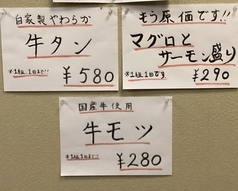 自家製やわらか
牛タン
※1組1日まで
¥580
もう原価です!!
マグロと
サーモン盛り
※1組1日です
¥290
国産牛使用
牛モツ
¥280